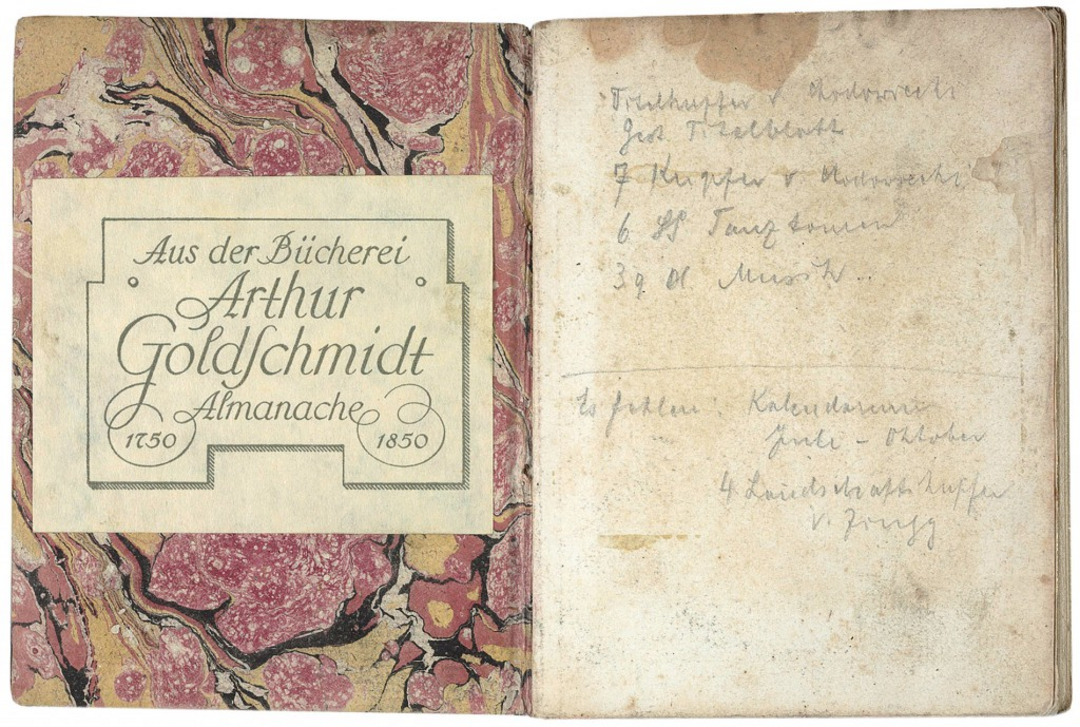 Aus der Bücherei
Arthur
Goldschmidt
Almanache
1750 1850
Titelkupfer v Chodowiecki
Gest Titelblatt
7 Kupfer v Chodowiecki
6 Tanztouren
3 Musik
Es fehlen: Kalendarium
– Oktober
4 Landschaftskupfer
v.